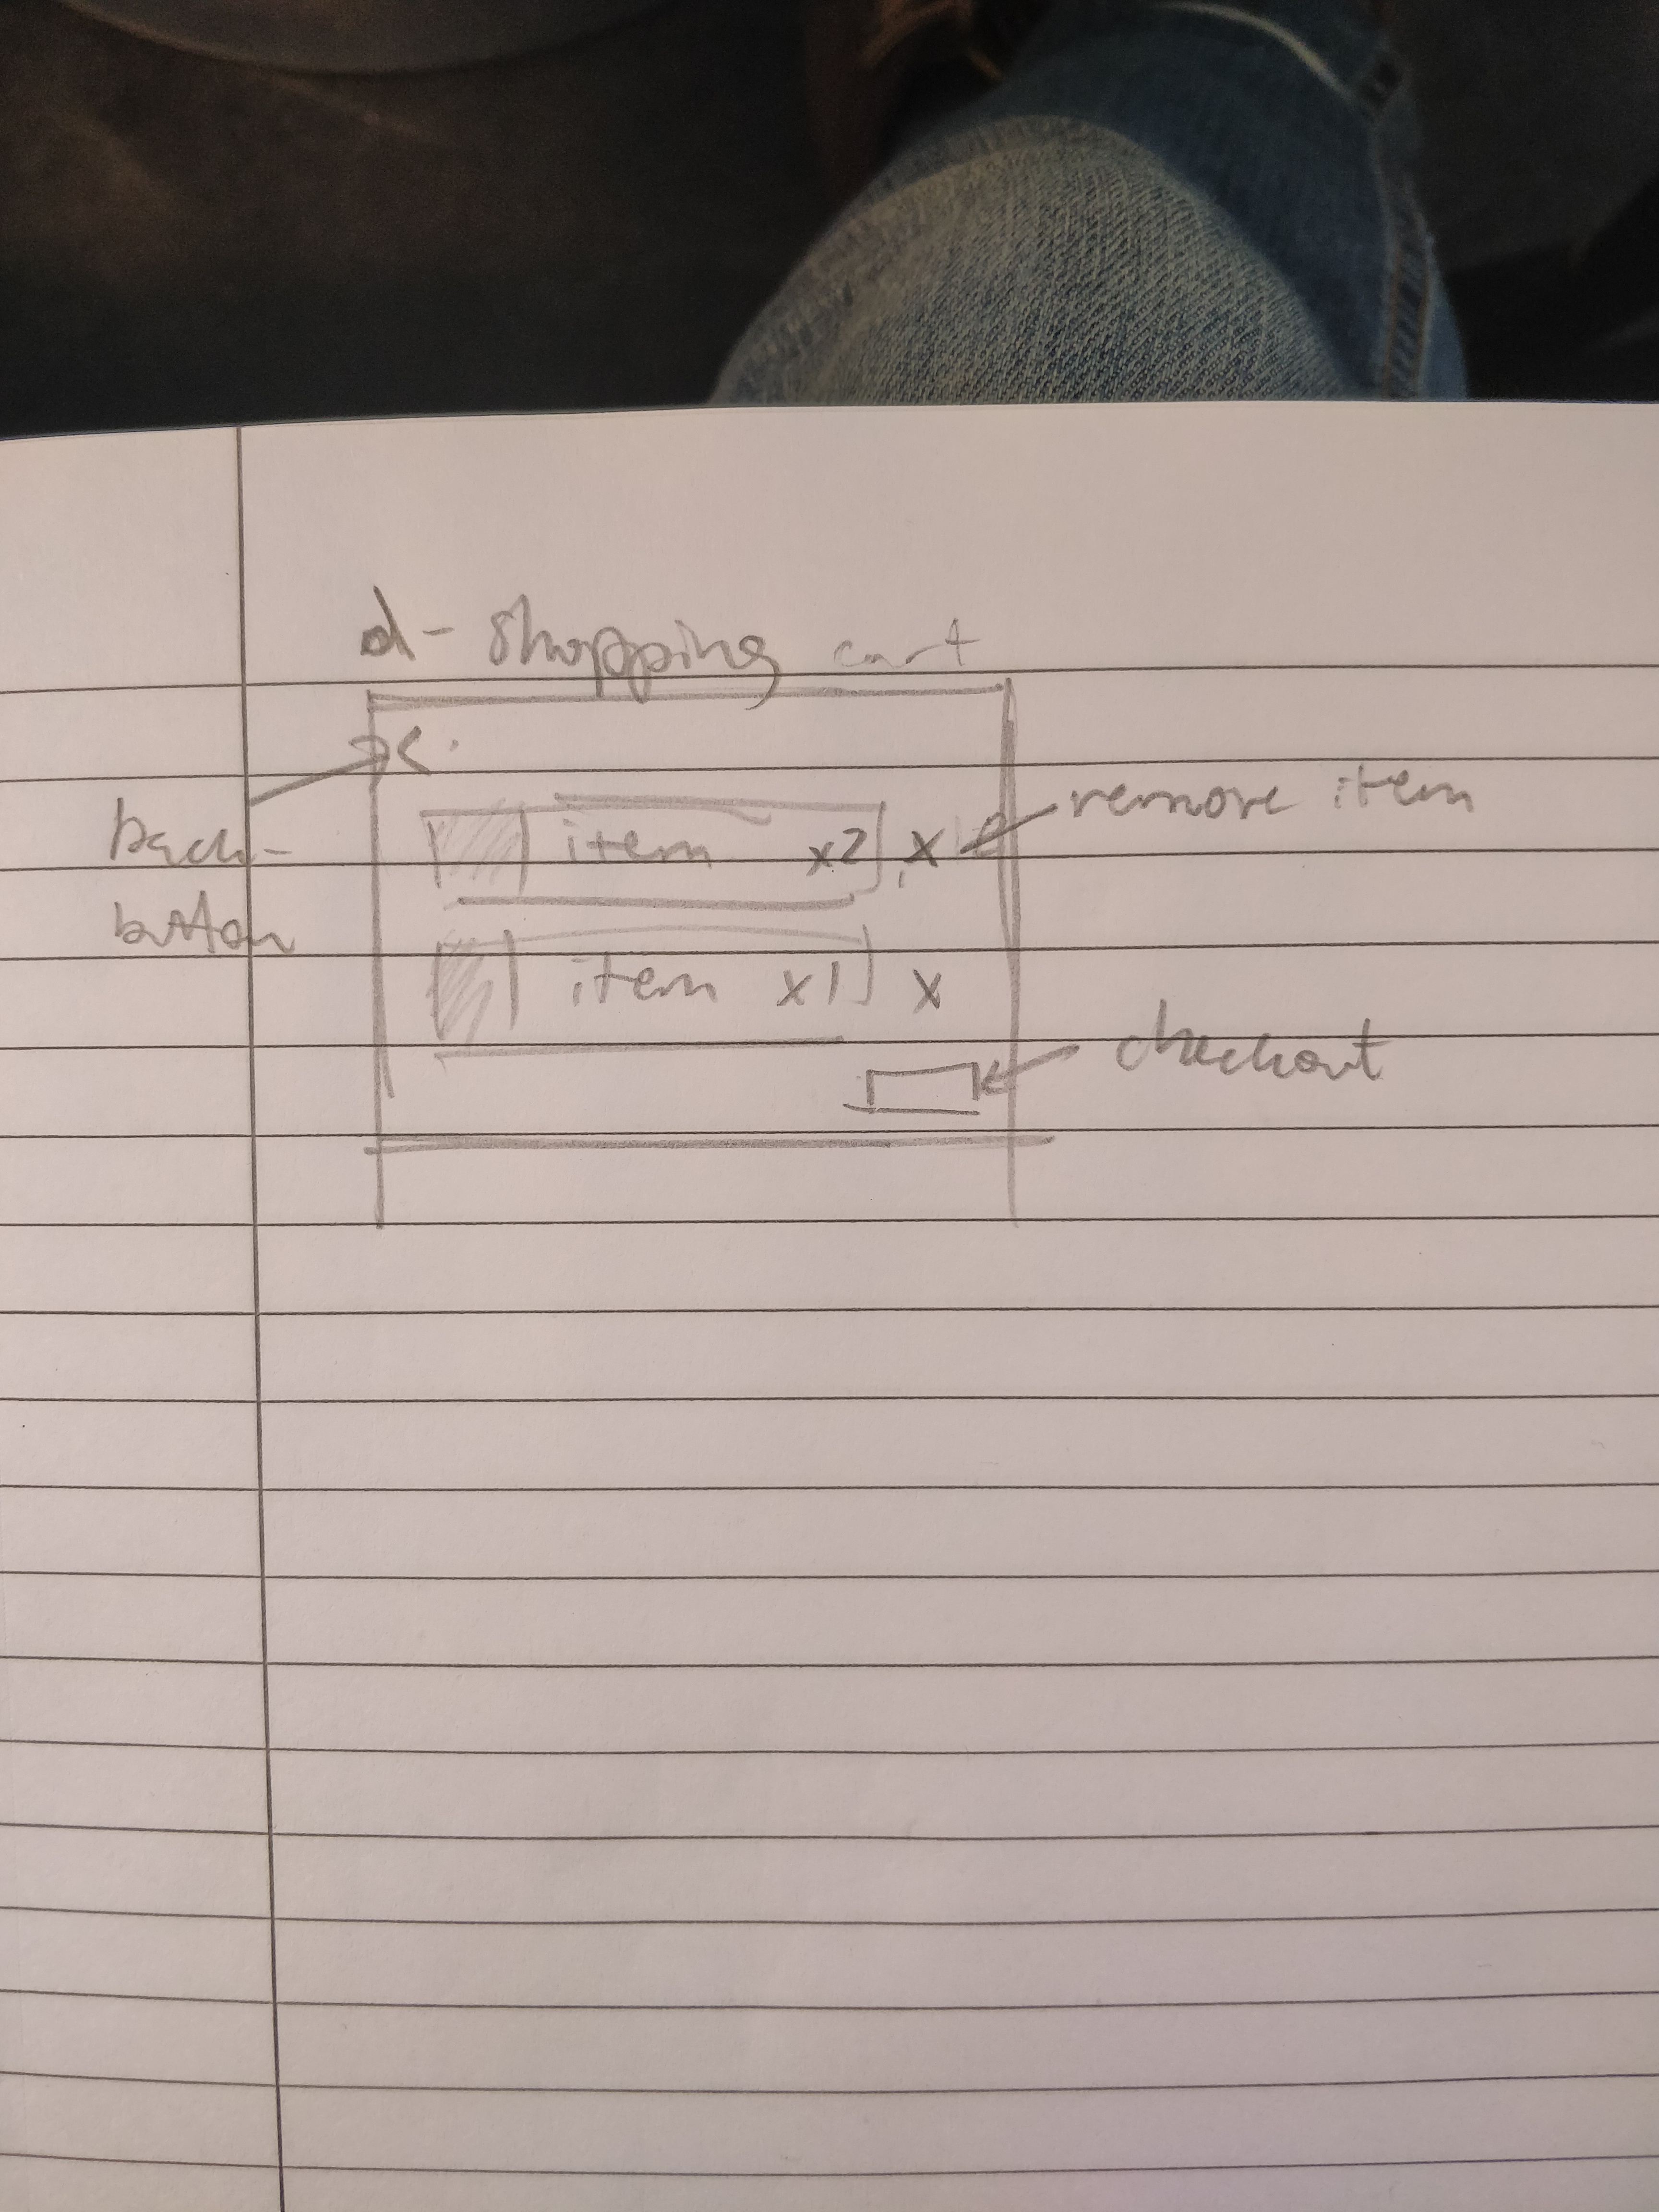 d- shopping cart
<
back-
button
item x2 x
remove item
item x1 x
checkout